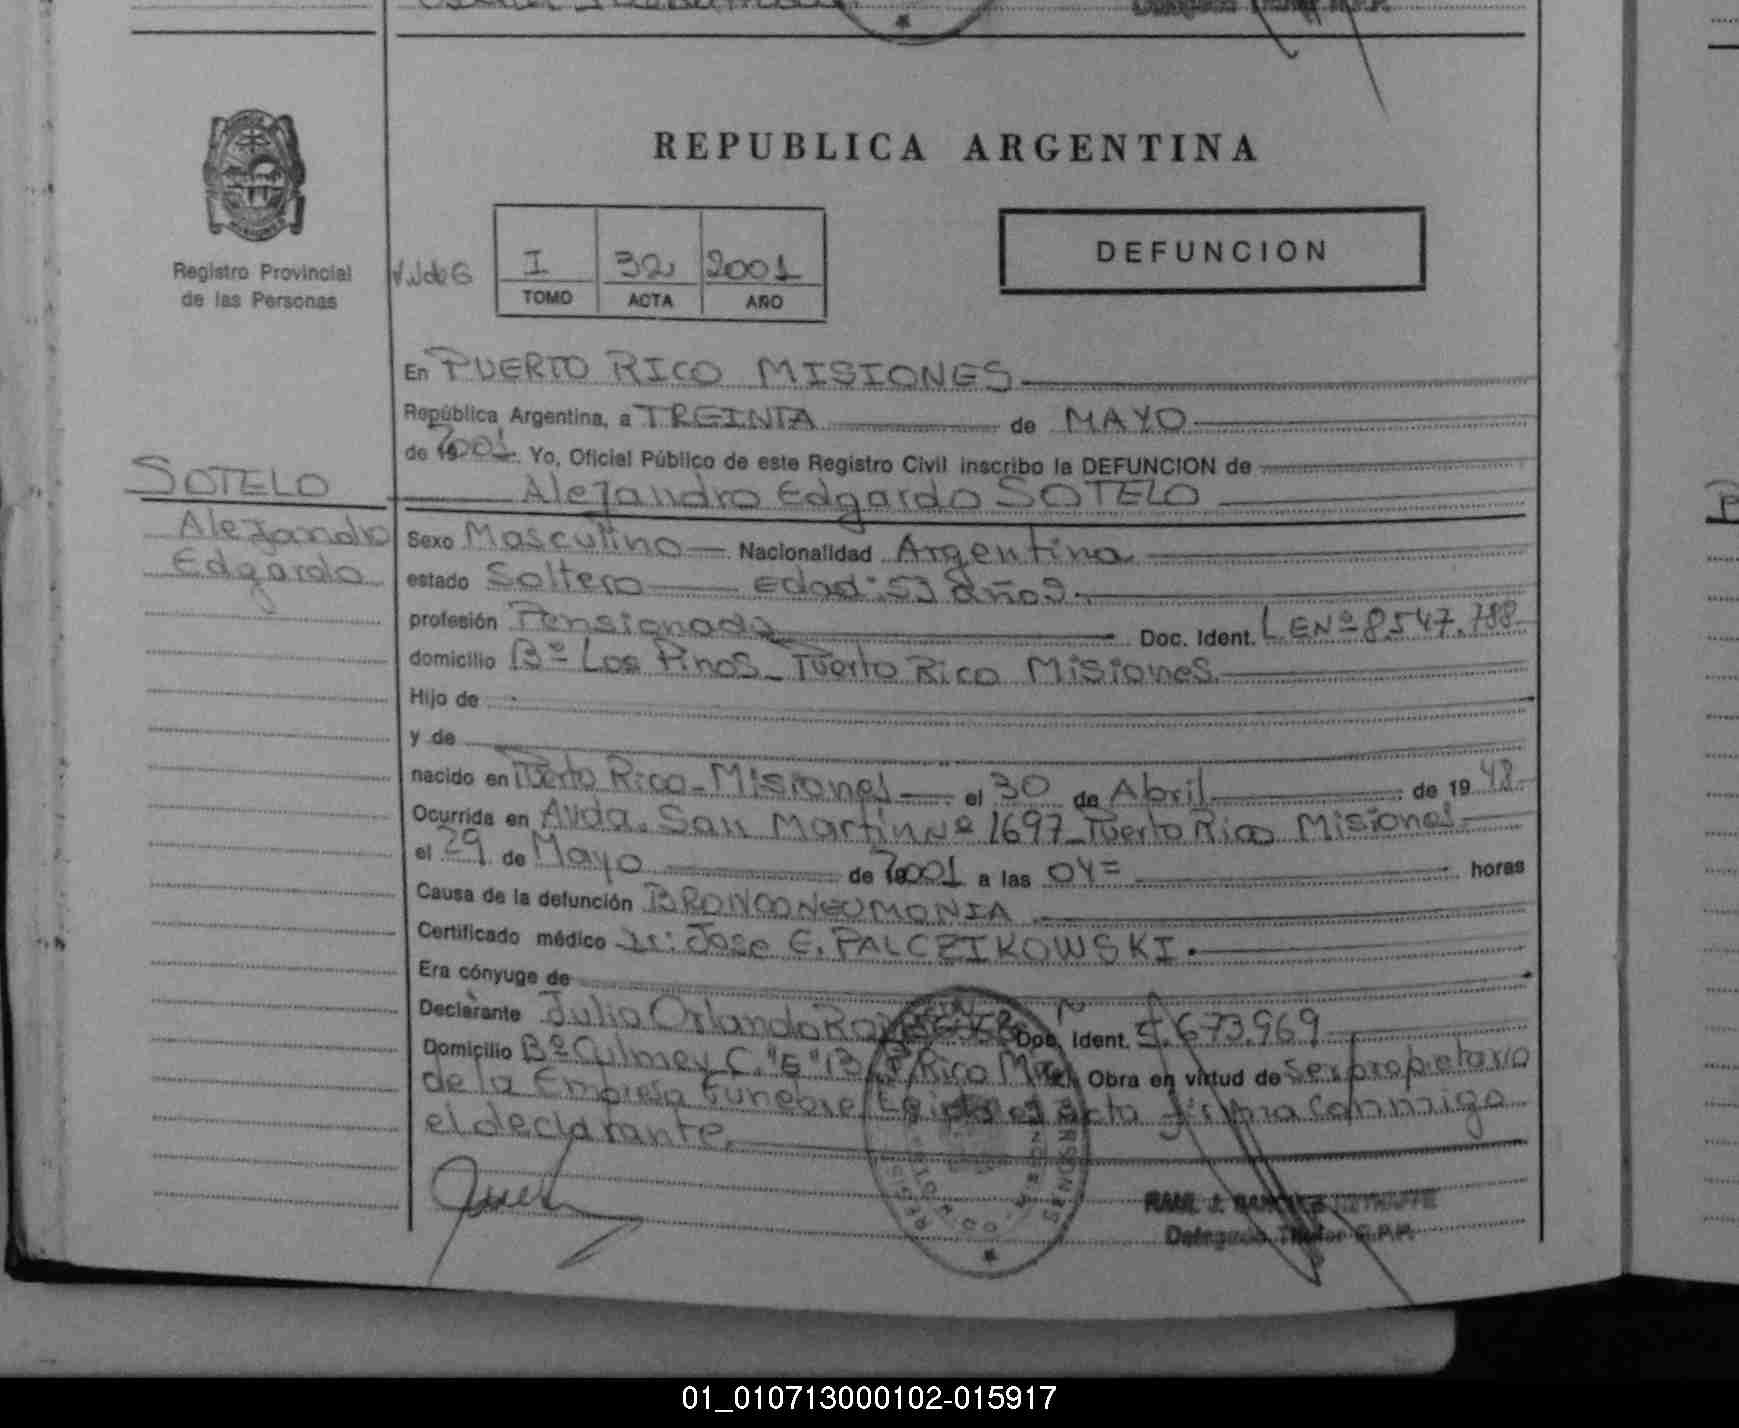 REPUBLICA ARGENTINA
Registro Provincial
de las Personas
I 32 2001
TOMO ACTA AÑO
DEFUNCION
En PUERTO RICO MISIONES
República Argentina, a TREINTA de MAYO
de 2001. Yo, Oficial Público de este Registro Civil inscribo la DEFUNCION de
SOTELO
Alejandro Edgardo SOTELO
Alejandro
Edgardo
Sexo Masculino Nacionalidad Argentina
estado Soltero Edad: 53 años.
profesión Pensionado Doc. Ident. LENº 8.547.788
domicilio Bº Los Pinos_ Puerto Rico Misiones
Hijo de
y de
nacido en Puerto Rico_Misiones el 30 de Abril de 1948
Ocurrida en Avda. San Martin Nº 1697_Puerto Rico Misiones
el 29 de Mayo de 2001 a las 04= horas
Causa de la defunción BRONCONEUMONIA
Certificado médico Dr: Jose E. PALCZIKOWSKI.
Era cónyuge de
Declarante Julio Orlando Doc. Ident. 673.969
Domicilio Bº C. "E" 13 P/Rico Mnes. Obra en virtud de ser propietario
de la Empresa Funebre Leida el acta firma conmigo
el declarante.
RAUL J.
Delegado Titular R.P.P.
01_010713000102-015917